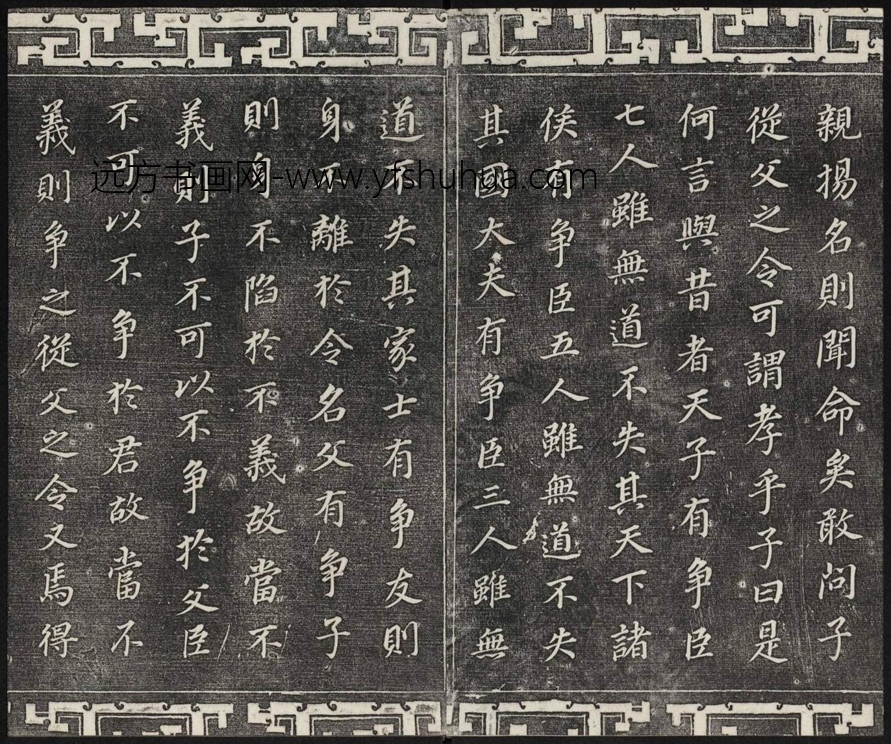 親揚名則聞命矣敢問子
從父之令可謂孝乎子曰是
何言與昔者天子有争臣
七人雖無道不失其天下諸
侯有争臣五人雖無道不失
其國大夫有争臣三人雖無
道不失其家士有争友則
身不離於令名父有争子
則身不陷於不義故當不
義則子不可以不争於父臣
不可以不争於君故當不
義則争之從父之令又焉得
远方书画网-www.yfshuhua.com